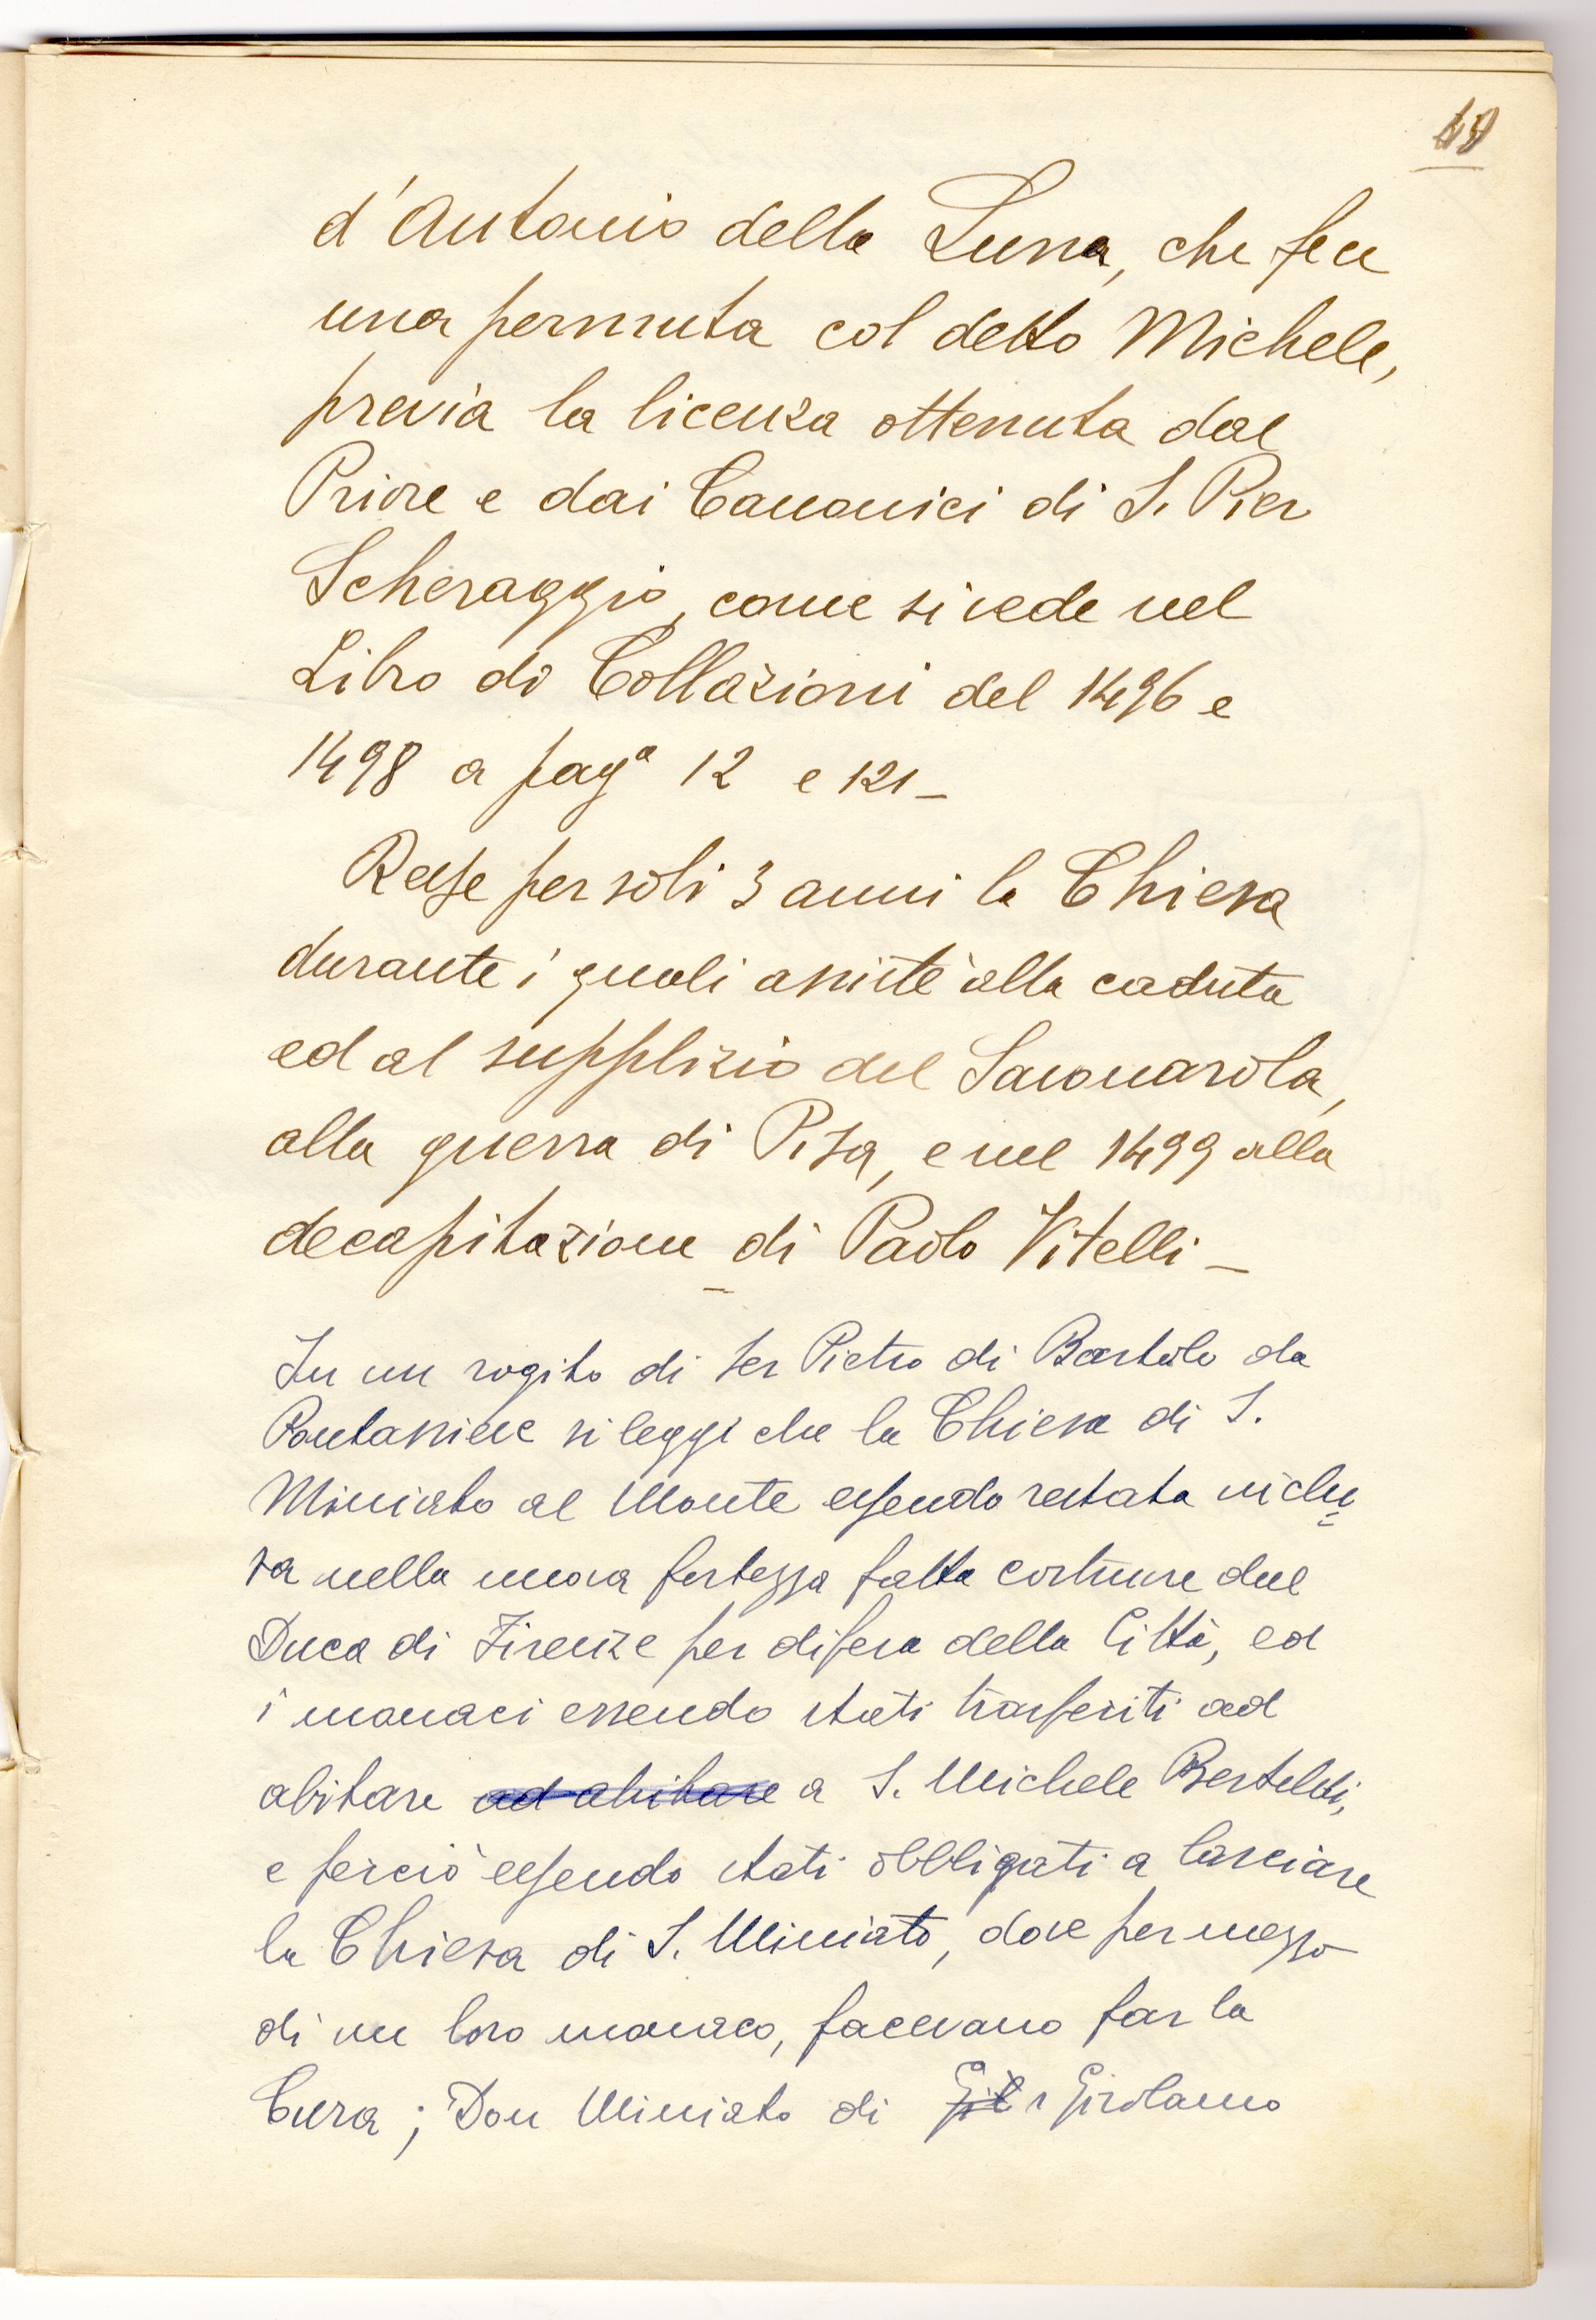 d'Antonio della Luna, che fece
una permuta col detto Michele,
previa la licenza ottenuta dal
Priore e dai Canonici di S. Pier
Scheraggio, come si vede nel
Libro di Collazioni del 1496 e
1498 a pagª 12 e 121 –
Resse per soli 3 anni la Chiesa
durante i quali assistè alla caduta
ed al supplizio del Savonarola,
alla guerra di Pisa, e nel 1499 alla
decapitazione di Paolo Vitelli –
In un rogito di Ser Pietro di Bartolo da
si legge che la Chiesa di S.
Miniato al Monte essendo restata inclu
sa nella nuova fortezza fatta costruire dal
Duca di Firenze per difesa della Città, ed
i monaci essendo stati trasferiti ad
abitare ad abitare a S. Michele Berteldi,
e perciò essendo stati obbligati a lasciare
la Chiesa di S. Miniato, dove per mezzo
di un loro monaco, facevano far la
Cura; Don Miniato di Girolamo